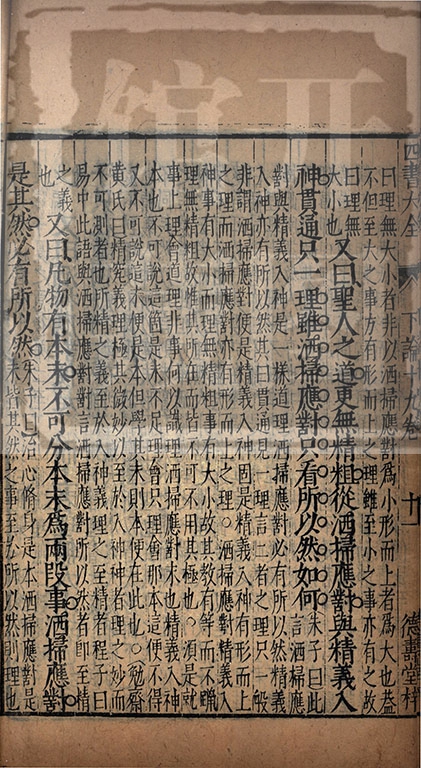 四書大全 下論十九卷 十一 德壽堂梓
曰理無大小者非以洒掃應對為小形而上者為大也蓋
不但至大之事方有形而上之理雖至小之事亦有之故
曰理無
大小也
又曰聖人之道更無精粗從洒掃應對與精義入
神貫通只一理雖洒掃應對只看所以然如何
朱子曰此
言洒掃應
對與精義入神是一樣道理洒掃應對必有所以然精義
入神亦有所以然其曰貫通只一理言二者之理只一般
非謂洒掃應對便是精義入神固是精義入神有形而上
之理而洒掃應對亦有形而上之理。洒掃應對精義入
神事有大小而理無精粗事有大小故其教有等而不躐
理無精粗故惟其所在而皆不可不用其極也。須是就
事上理會道理非事何以識理洒掃應對末也精義入神
本也不可說這箇是末不足理會只理會那本這便不得
又不可說這末便是本但學其末則本便在此也。勉齋
黃氏曰精究義理極其微妙以至於入神神者理之妙而
不可測者也所精之義至於入神義理之至精者程子曰
易中此語與洒掃應對對言洒掃應對所以然者即至精
之義
也
又曰凡物有本末不可分本末為兩段事洒掃應對
是其然必有所以然
朱子曰治心脩身是本洒掃應對是
末皆其然之事至於所以然則理也